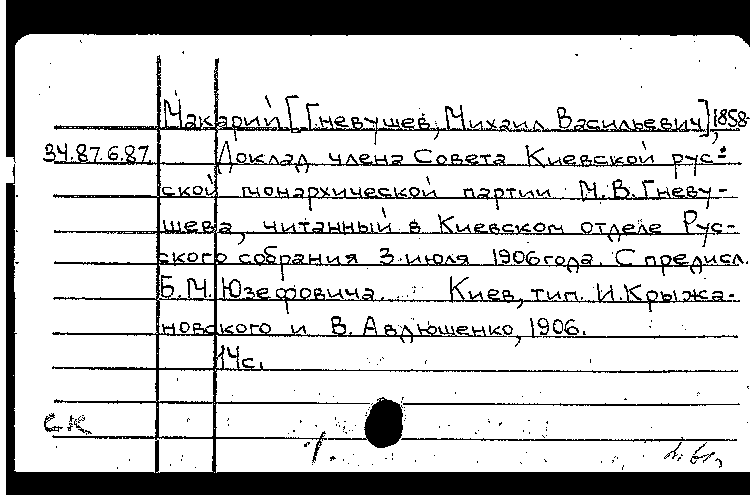 Макарий [Гневушев, Михаил Васильевич], 1858-
34.87.6.87. Доклад члена Совета Киевской рус-
ской монархической партии М.В.Гневу-
шева, читанный в Киевском отделе Рус-
ского собрания 3 июля 1906 года. С предисл.
Б.М. Юзефовича. Киев, тип. И.Крыжа-
новского и В. Авдюшенко, 1906.
14с.
СК